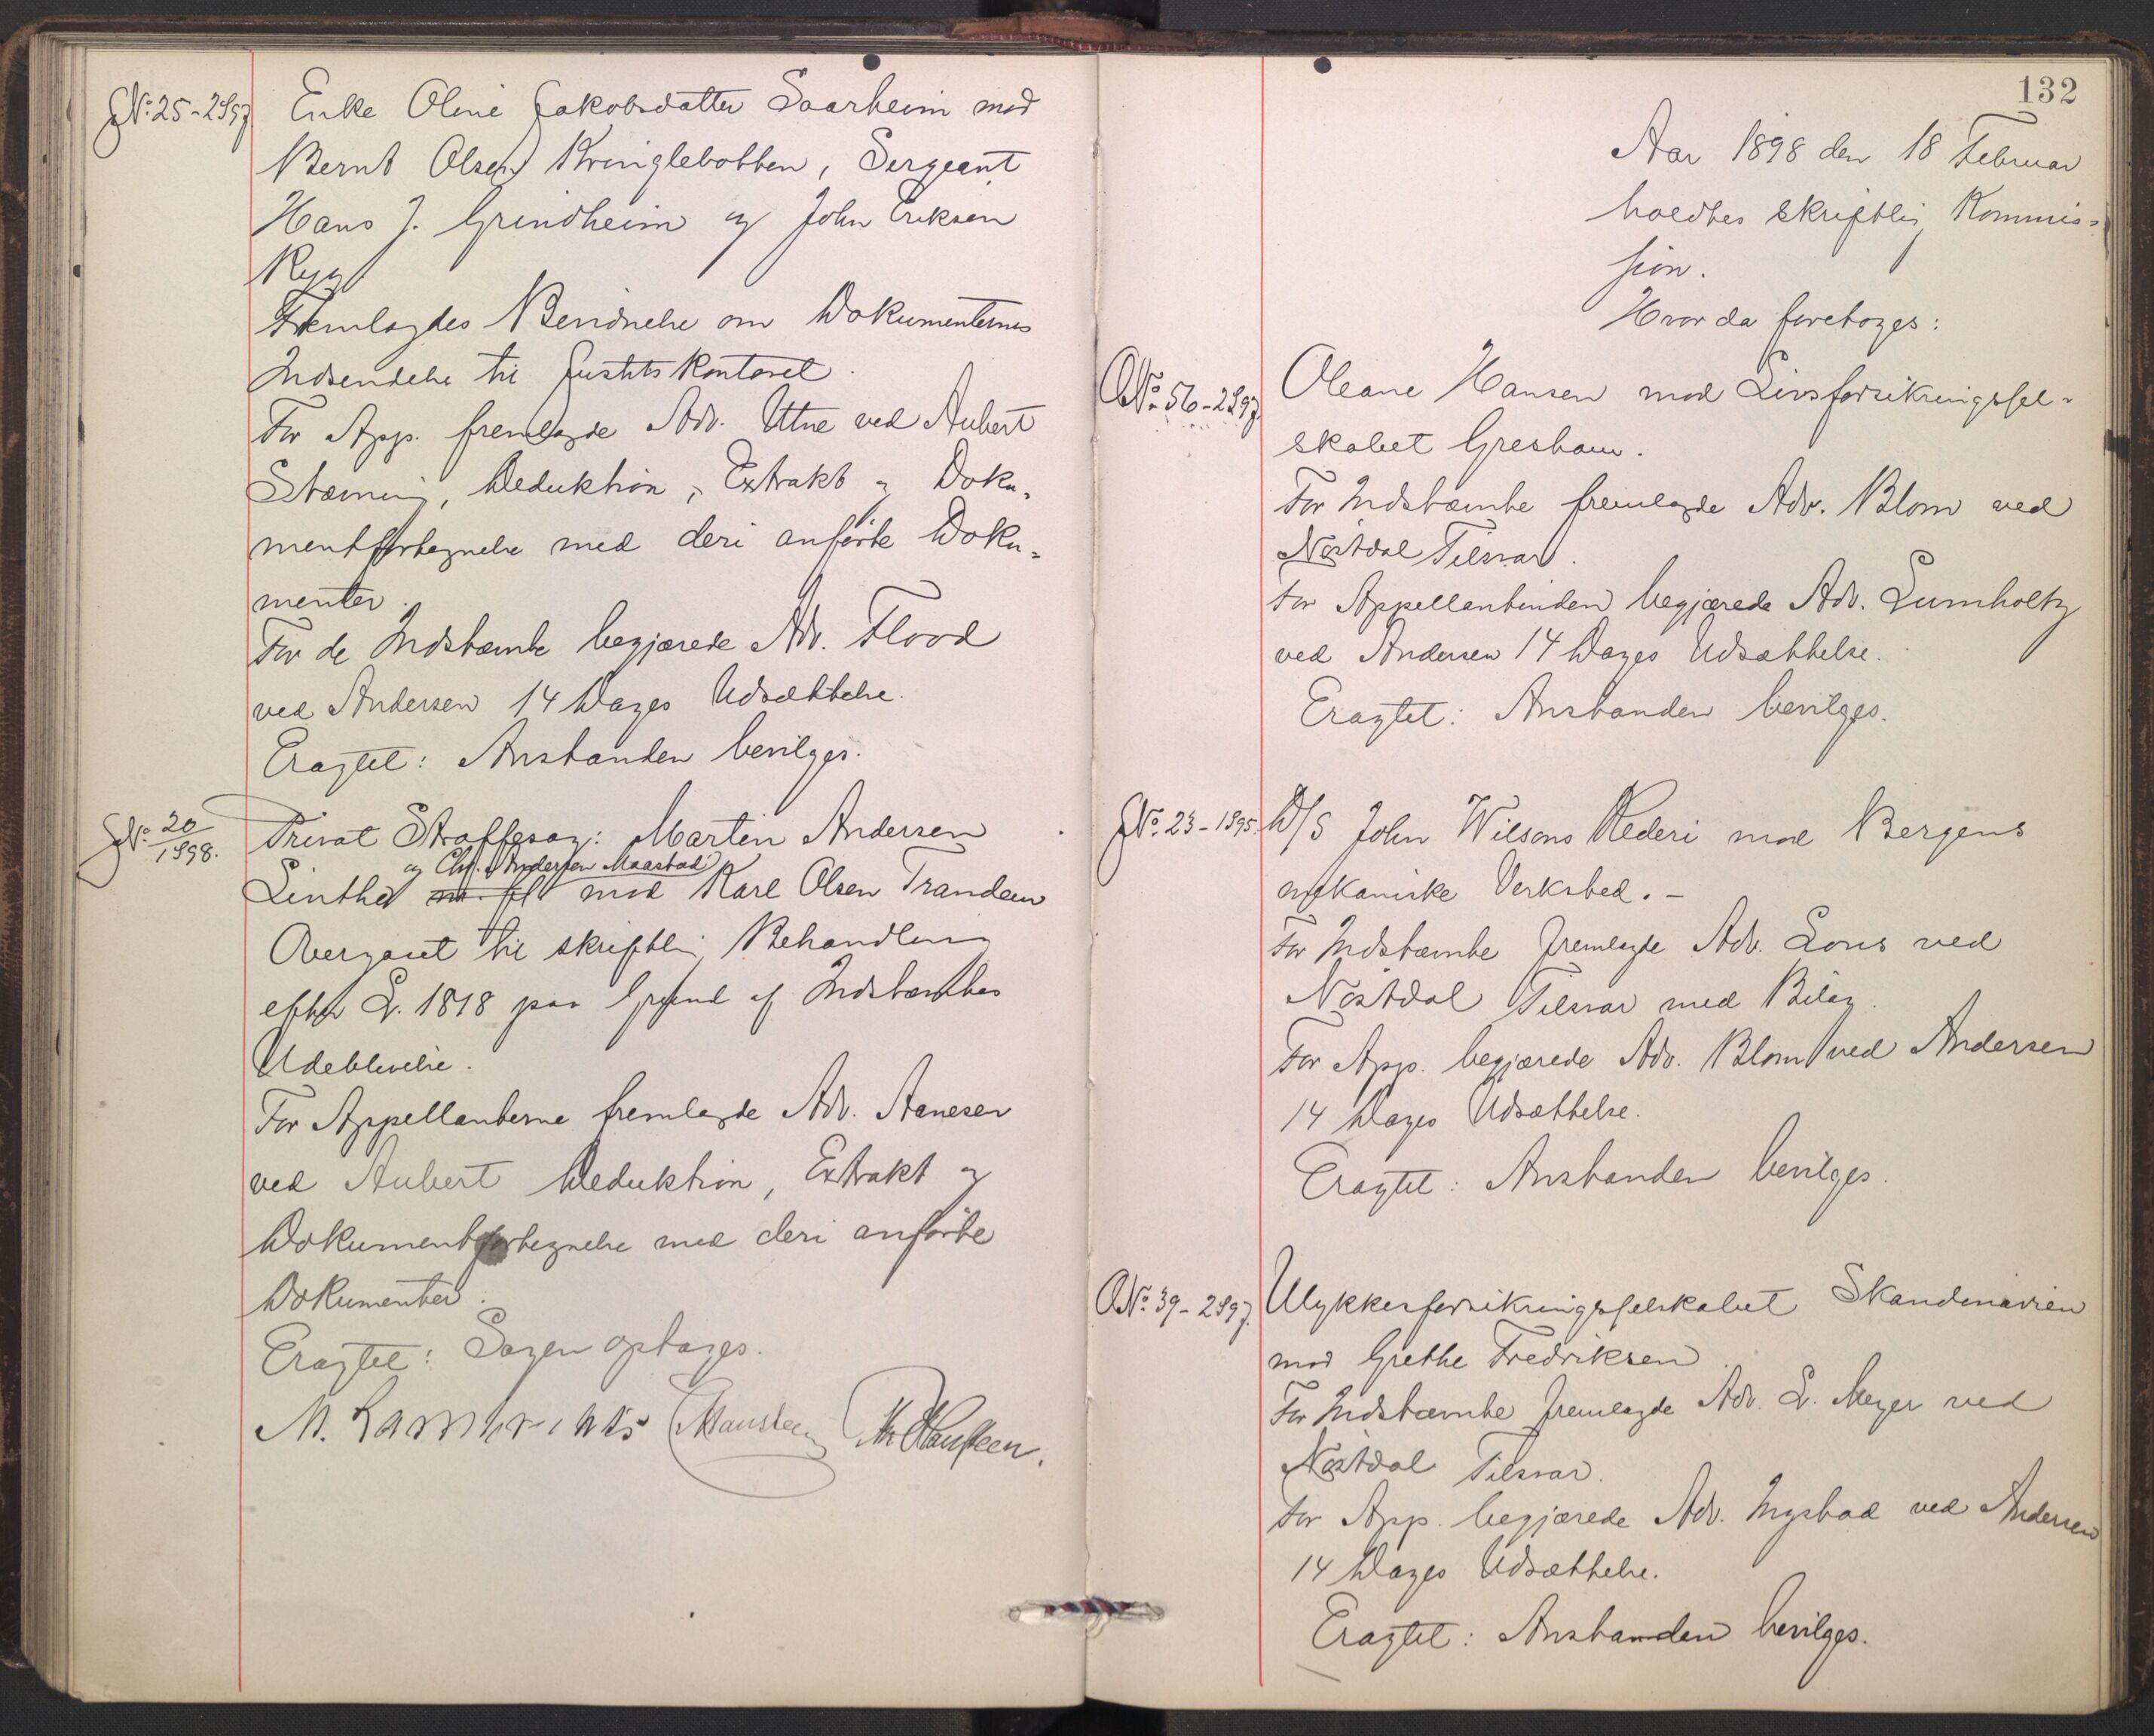 No. 25-2/97
Enke Oline Jakobsdatter Saarheim mod
Bernt Olsen Kringlebotten, Sergeant
Hans J. Grindheim og John Eriksen
Rygg
Fremlagdes Bevidnelse om Dokumenternes
Indsendelse til Justitskontoret.
For App. fremlagde Adv. Utne ved Aubert
Stævning, Deduktion, Extrakt og Doku-
mentfortegnelse med deri anførte Doku-
menter.
For de Indstævnte begjærede Adv. Flood
ved Andersen 14 Dages Udsættelse.
Eragtet: Anstanden bevilges.
No. 20/1898.
Privat Straffesag: Martin Andersen
og Chr. Andersen Maastad
Linthei mod Karl Olsen Trandem
Overgaaet til skriftlig Behandling
efter L. 1818 paa Grund af Indstævntes
Udeblivelse.
For Appellanterne fremlagde Adv. Aanesen
ved Aubert Deduktion, Extrakt og
Dokumentfortegnelse med deri anførte
Dokumenter.
Eragtet: Sagen optages.
M. Lambrechts Hansteen
132
Aar 1898 den 18 Februar
holdtes skriftlig Kommis-
sion.
Hvor da foretoges:
No. 56-2/97
Oleane Hansen mod Livsforsikringssel-
skabet Gresham.
For Indstævnte fremlagde Adv. Blom ved
Nøstdal Tilsvar.
For Appellantinden begjærede Adv. Lumholtz
ved Andersen 14 Dages Udsættelse.
Eragtet: Anstanden bevilges.
No. 23-1895
D/S John Wilsons Rederi mod Bergens
mekaniske Verksted. -
For Indstævnte fremlagde Adv. Lous ved
Nøstdal Tilsvar med Bilag.
For App. begjærede Adv. Blom ved Andersen
14 Dages Udsættelse.
Eragtet: Anstanden bevilges.
No. 39-2/97.
Ulykkesforsikringsselskabet Skandinavien
mod Grethe Fredriksen.
For Indstævnte fremlagde Adv. L. Meyer ved
Nøstdal Tilsvar.
For App. begjærede Adv. Mysbad ved Andersen
14 Dages Udsættelse.
Eragtet: Anstanden bevilges.